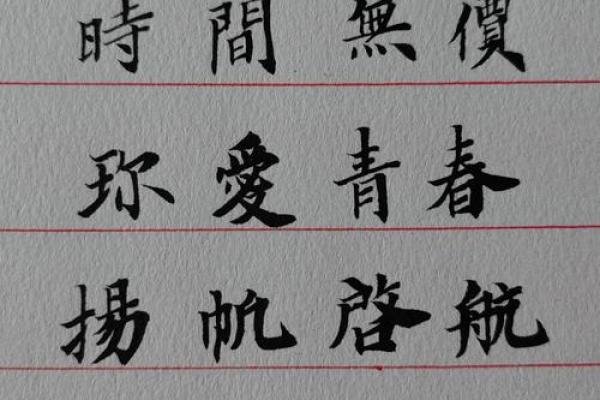 時間無價
珎愛青春
揚帆啓航